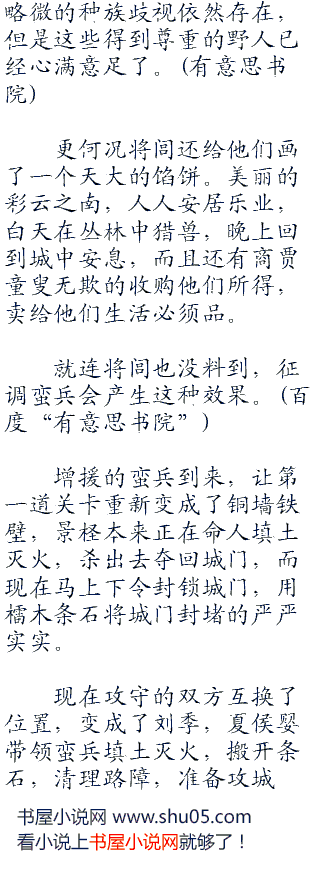 略微的种族歧视依然存在，
但是这些得到尊重的野人已
经心满意足了。(有意思书
院)
更何况将闾还给他们画
了一个天大的馅饼。美丽的
彩云之南，人人安居乐业，
白天在丛林中猎兽，晚上回
到城中安息，而且还有商贾
童叟无欺的收购他们所得，
卖给他们生活必须品。
就连将闾也没料到，征
调蛮兵会产生这种效果。(百
度“有意思书院”)
增援的蛮兵到来，让第
一道关卡重新变成了铜墙铁
壁，景柽本来正在命人填土
灭火，杀出去夺回城门，而
现在马上下令封锁城门，用
檑木条石将城门封堵的严严
实实。
现在攻守的双方互换了
位置，变成了刘季，夏侯婴
带领蛮兵填土灭火，搬开条
石，清理路障，准备攻城
书屋小说网 www.shu05.com
看小说上书屋小说网就够了！